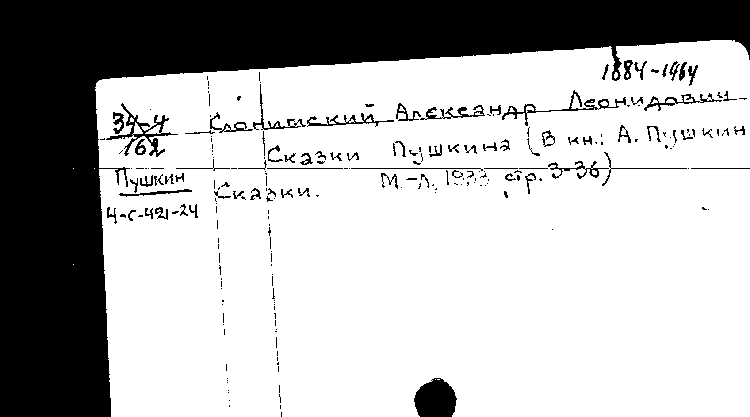 1884-1964
34-4 Слонимский, Александр Леонидович
162
Сказки Пушкина (В кн.: А. Пушкин
Пушкин
Сказки. М.-Л., 1933 стр. 3-36)
4-С-421-24